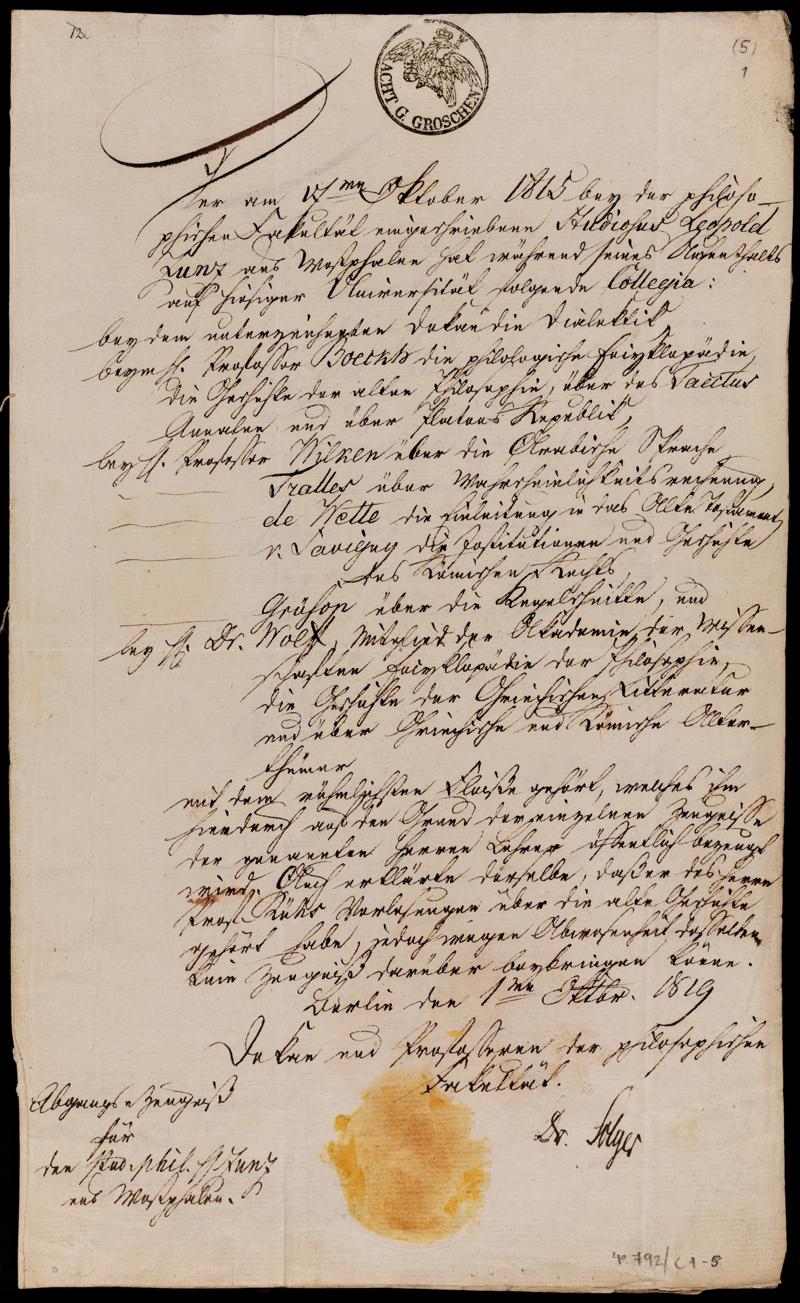 12.
(5)
1
ACHT G. GROSCHEN
Der am 17ten Oktober 1815 bey der philoso-
phischen Fakultät eingeschriebene Studiosus Leopold
Zunz aus Westphalen hat während seines Aufenthalts
auf hiesiger Universität folgende Collegia:
bey dem unterzeichneten Dekan die Dialektik
beym H. Professor Boeckh die philologische Encyklopädie,
die Geschichte der alten Philosophie, über des Tacitus
Annalen und über Platons Republik,
bey H. Professor Wilken über die Arabische Sprache
Tralles über Wahrscheinlichkeitsrechnung,
de Wette die Einleitung in das Alte Testament,
v. Savigny die Institutionen und Geschichte
des Römischen Rechts,
Grüson über die Kegelschnitte, und
bey H. Dr. Wolf, Mitglied der Akademie der Wissen-
schaften Encyklopädie der Philosophie,
die Geschichte der Griechischen Litteratur
und über Griechische und Römische Alter-
thümer
mit dem rühmlichsten Fleiße gehört, welches ihm
hierdurch auf den Grund der einzelnen Zeugnisse
der genannten Herren Lehrer öffentlich bezeugt
wird. Auch erklärte derselbe, daß er des Herrn
Prof. Rühs Vorlesungen über die alte Geschichte
gehört habe, jedoch wegen Abwesenheit desselben
kein Zeugniß darüber beybringen könne.
Berlin den 1ten Oktbr. 1819
Dekan und Professoren der philosophischen
Fakultät.
Dr. Solger
Abgangs-Zeugniß
für
den Stud. phil. H Zunz
aus Westphalen.
4o. 792/C1-5